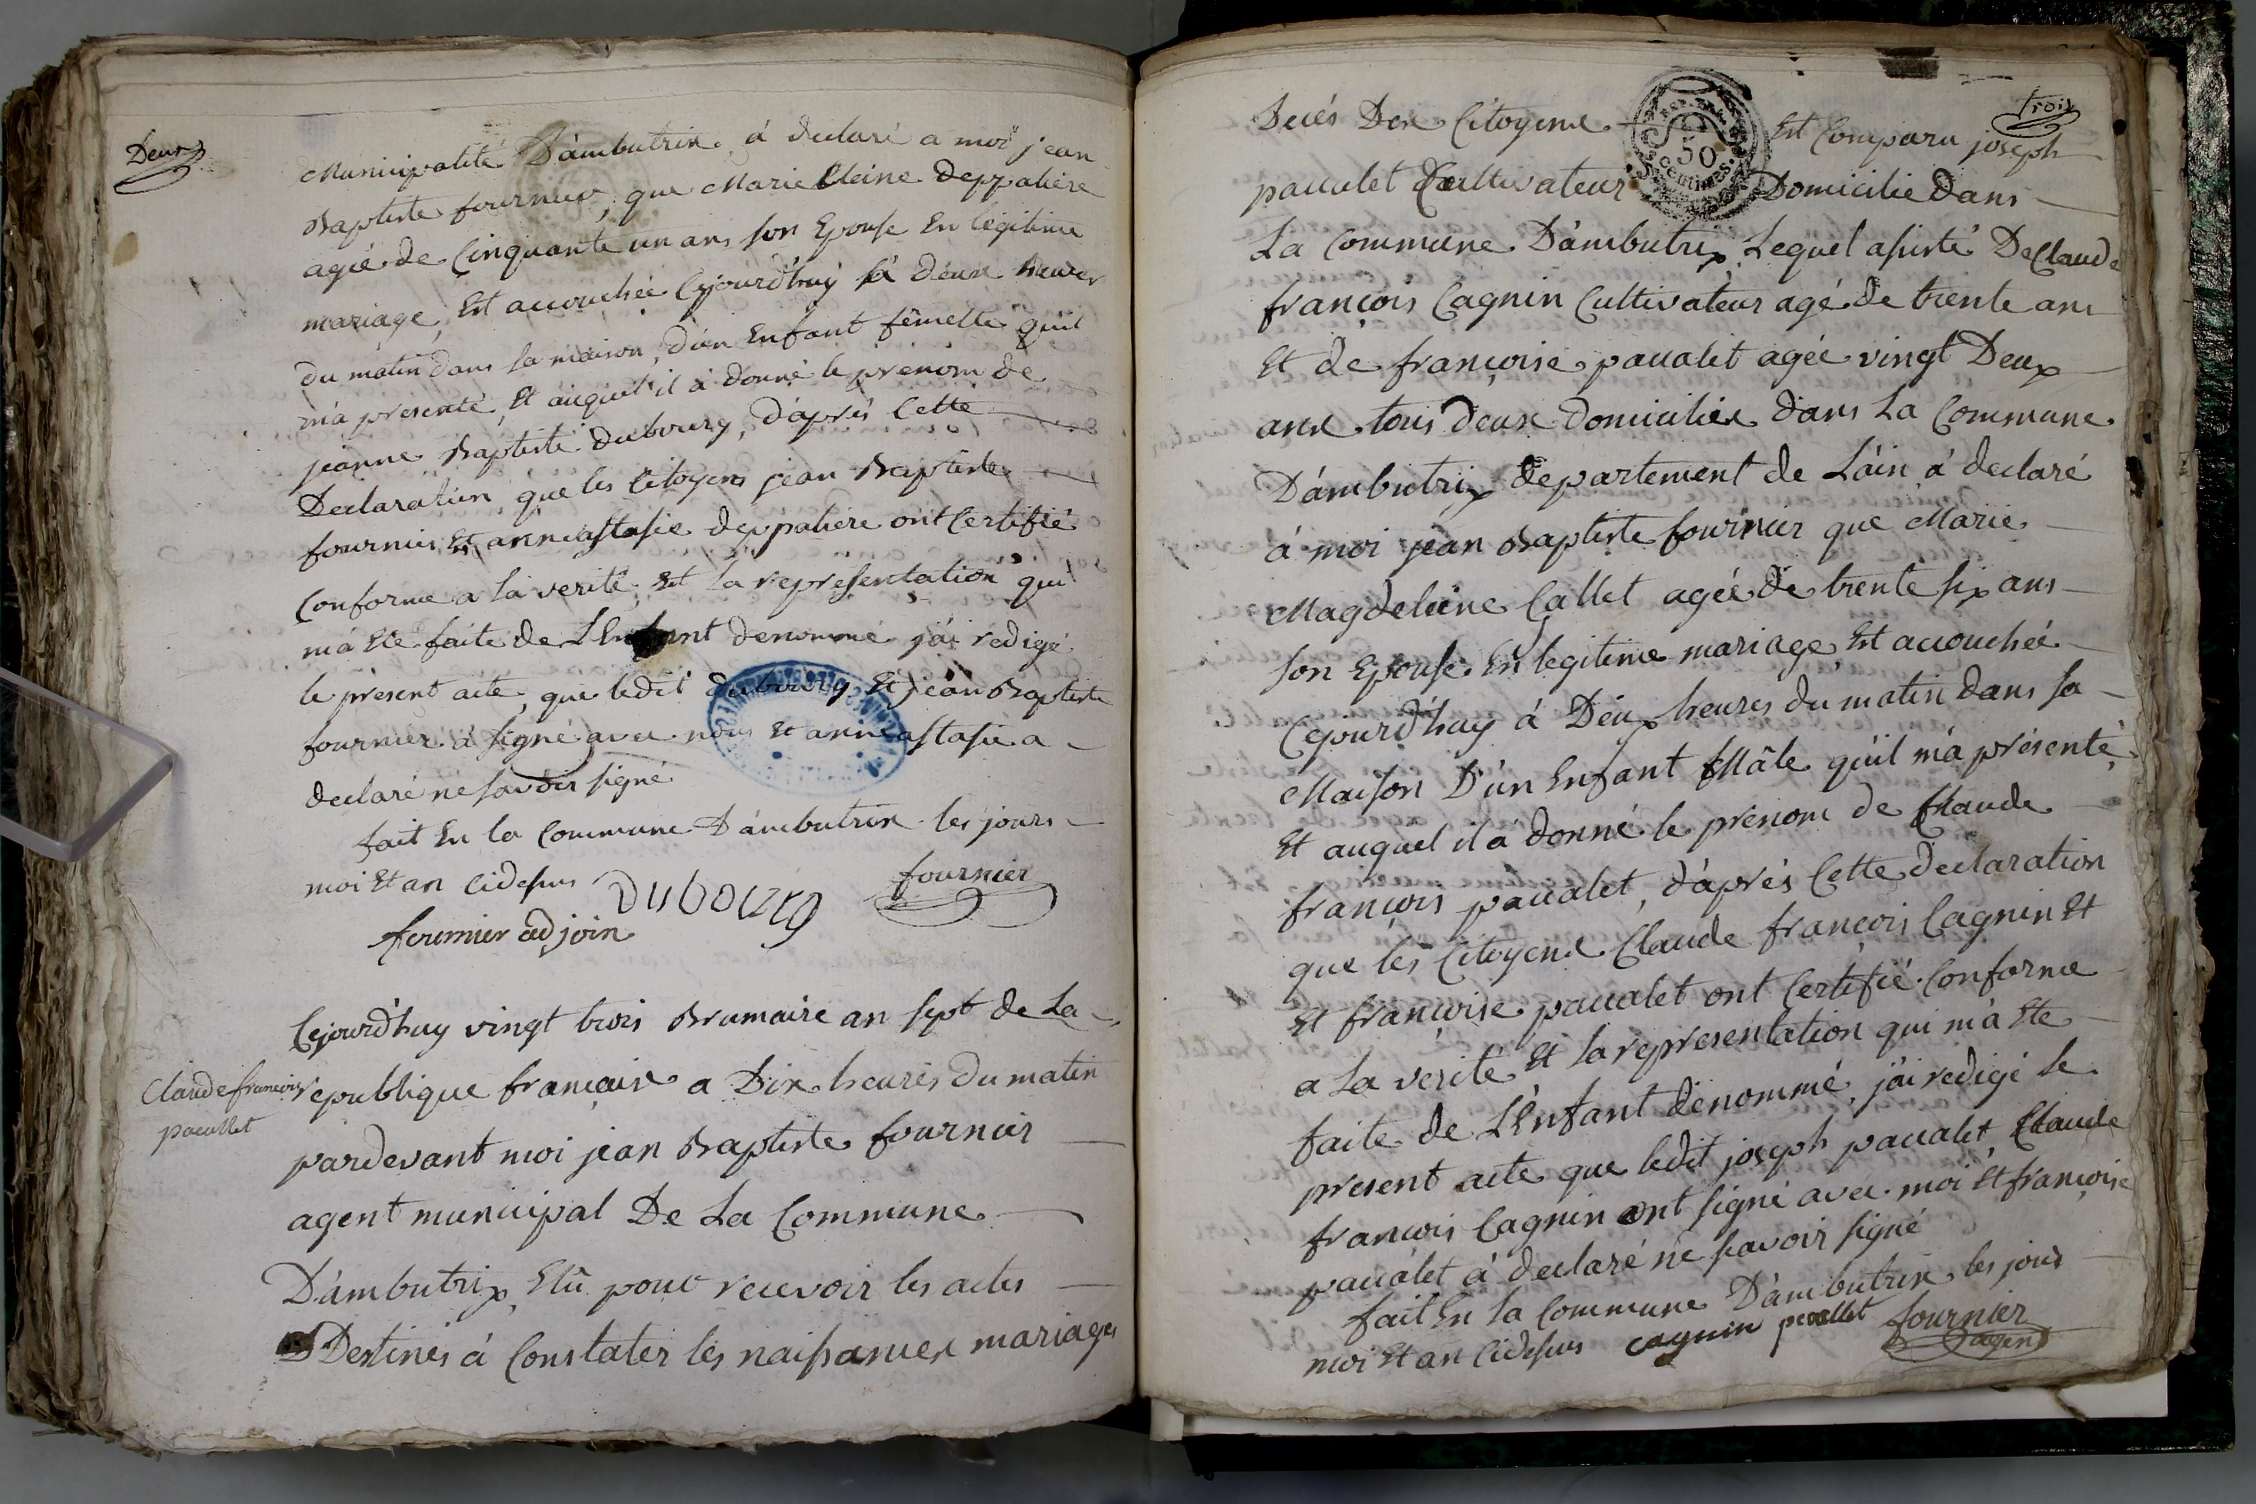 Deux
Municipalité D'ambutrix, à declaré a moi jean
Baptiste fournier, que Marie Reine deppaliere
agée de Cinquante un ans son Epouse En légitime
mariage, Est accouchée Cejourd'huy à deux heures
du matin dans sa maison, d'un Enfant fêmelle qu'il
m'a présenté, Et auquel il à donné le prenom de
jeanne Baptiste dubourg, d'après Cette
Declaration que les Citoyens jean Baptiste
fournier, Et anneastasie deppaliere ont Certifié
Conforme a la verité, Et la représentation qui
m'à Ete faite de L'Enfant denommé j'ai redigé
le present acte, que ledit dubourg Et jean Baptiste
fournier à signé avec nous Et anneastasie a
declaré ne savoir signé
fait En la Commune D'ambutrix les jours
moi Et an Cidesus
DUBOURG
fournier
fournier adjoin
Cejourd'huy vingt trois Brumaire an sept de La
Claude françois
pacallet
republique française a Dix heures du matin
pardevant moi jean Baptiste fournier
agent municipal De La Commune
D'ambutrix, Elû pour recevoir les actes
Destinés à Constater les naissances mariages
trois
Decés Des Citoyens Est Comparu joseph
50
Centimes.
pacalet Cultivateur Domicilié dans
La Commune D'ambutrix, Lequel asisté De Claude
françois Cagnin Cultivateur agé de trente ans
Et de françoise pacalet agée vingt Deux
ans tous deux domiciliés dans La Commune
D'ambutrix departement de L'ain à declaré
à moi jean Baptiste fournier que Marie
Magdeleine Callet agée de trente six ans
son Epouse En legitime mariage Est accouchée
Cejourd'huy à Deux heures du matin dans sa
Maison D'un Enfant Mâle qu'il m'a présenté,
Et auquel il à donné le prenom de Claude
françois pacalet, d'après Cette declaration
que les Citoyens Claude françois Cagnin Et
Et françoise pacalet ont Certifié Conforme
a La verité Et la representation qui m'à Ete
faite de L'Enfant denommé, j'ai redigé le
present acte que ledit joseph pacalet, Claude
françois Cagnin ont signé avec moi Et françoise
pacalet à declaré ne savoir signé
fait En la Commune D'ambutrix les jour
moi Et an Cidesus cagnin pacallet fournier
agent